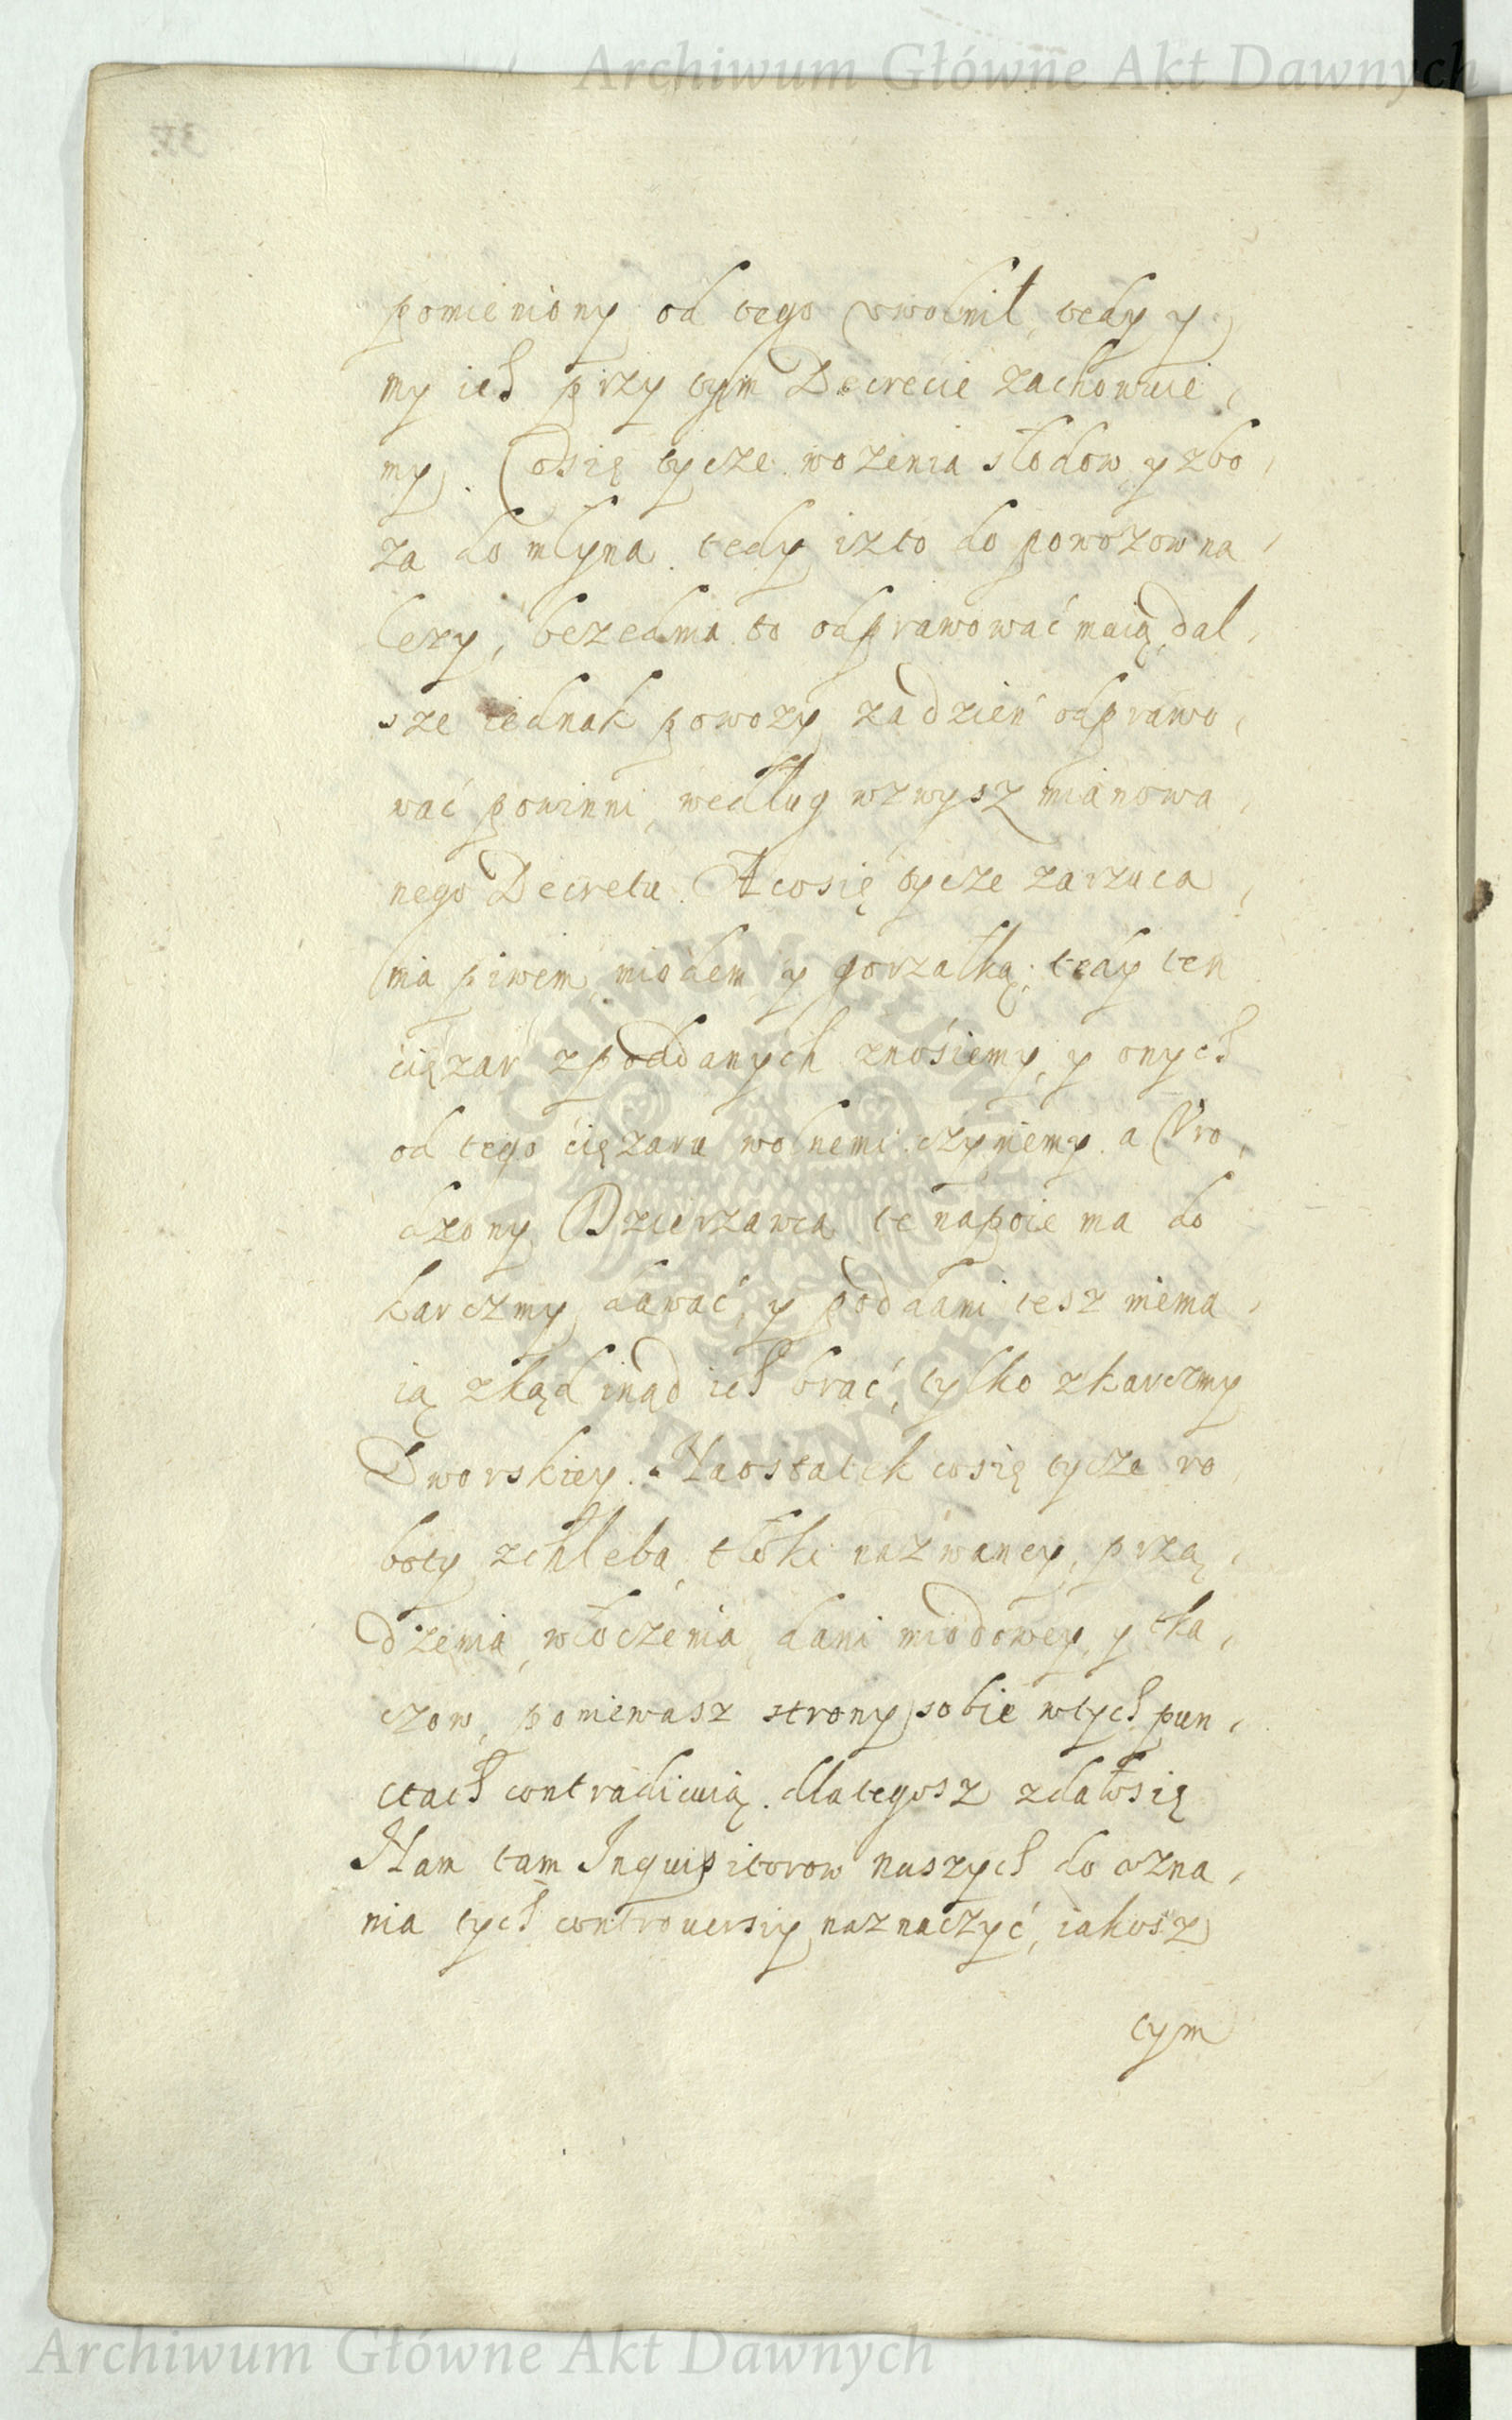 Archiwum Główne Akt Dawnych
pomieniony od tego vwolnił, tedy y
my ich przy tym Decrecie zachowuie,
my. Cosię tycze wozenia słodow, y zbo,
za do młyna tedy izto do powozow na,
lezy, bezedma to odprawować maią, dal,
sze iednak powozy zadzień odprawo,
wać powinni, według wzwysz mianowa,
nego Decretu. Acosię tycze zarzuca,
nia piwem, miodem, y gorzałką, tedy ten
ciązar zpoddanych znośiemy, y onych
od tego ciązaru wolnemi czyniemy. a Vro,
dzony Dzierzawca te napoie ma do
karczmy dawać, y poddani tesz niema,
ią zkąd inąd ich brać, tylko zkarczmy
Dworskiey. Naostatek cosię tycze ro,
boty zchleba, tłoki nazwaney, przą,
dzenia, włoczenia, dani miodowey, y tka,
czow, poniewasz strony sobie wtych pun,
ctach contradicuią. dlategosz zdałosię
Nam tam Inquisitorow naszych do ozna,
nia tych controuersiy naznaczyć, iakosz
tym
Archiwum Główne Akt Dawnych